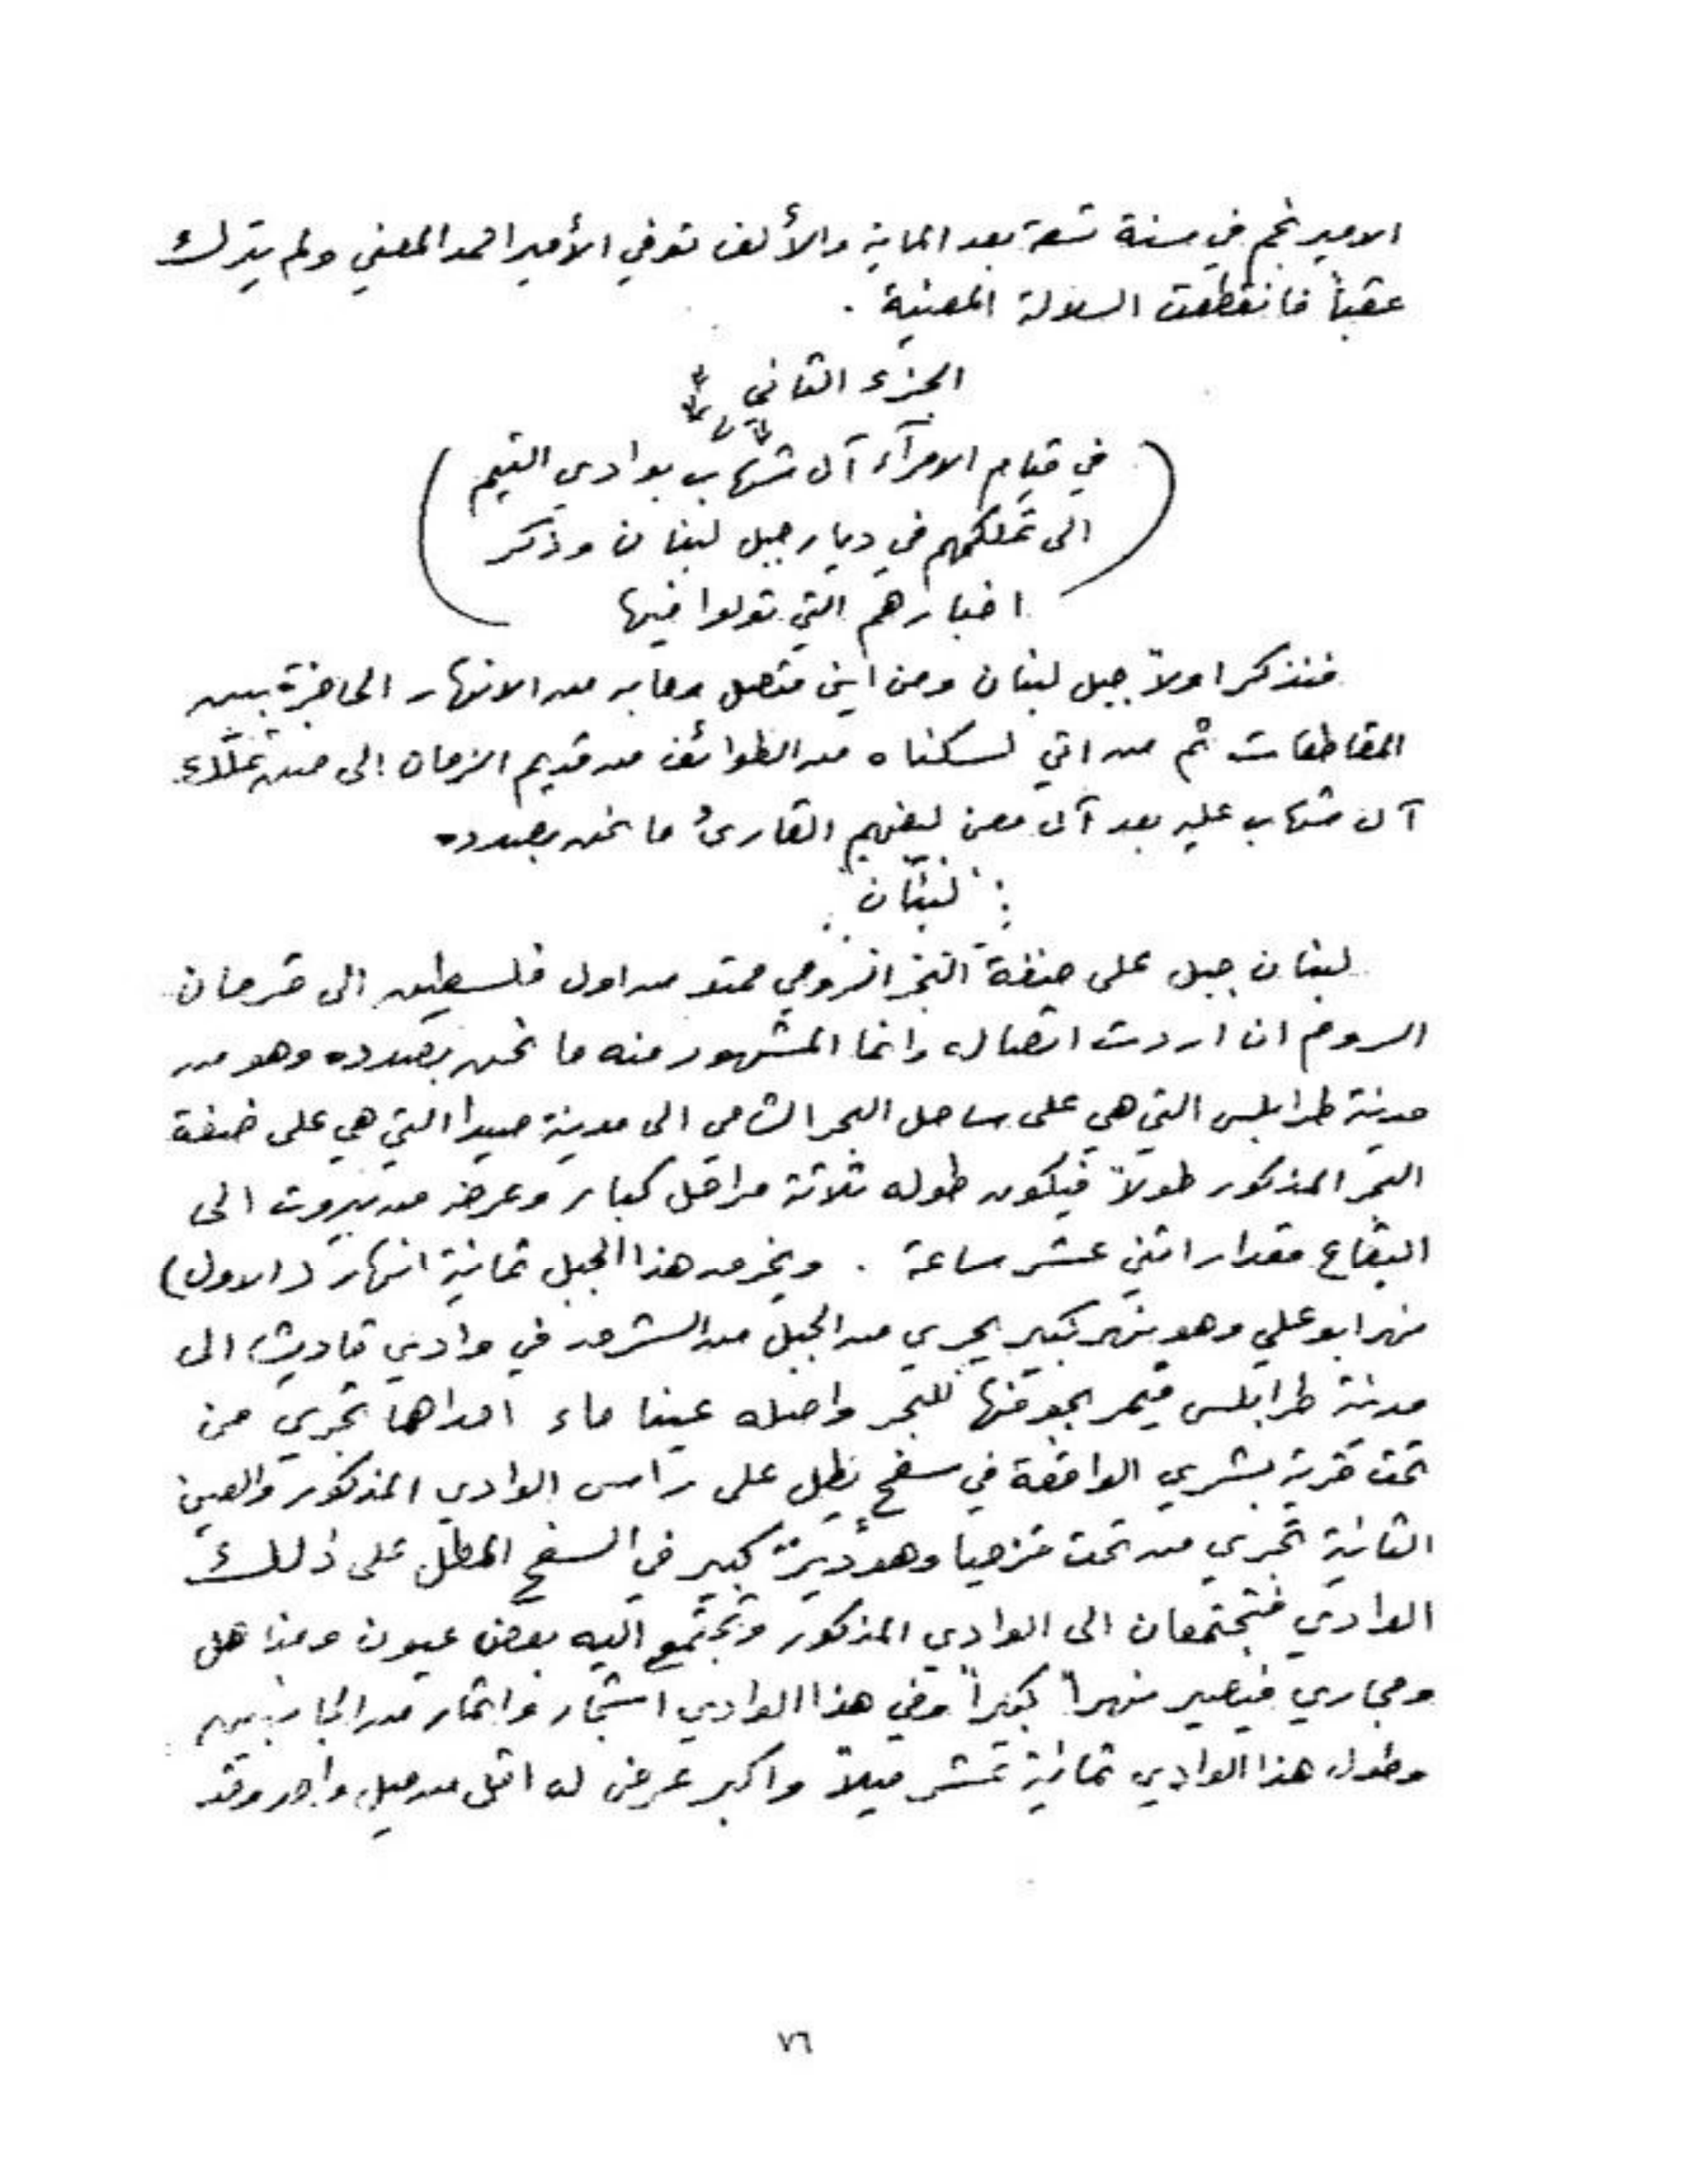 الامير نجم في سنة تسعة بعد الماية والألف توفي الأمير احمد المعني ولم يترك
عقباً فانقطعت السلالة المعنية .
الجزء الثاني
في قيام الامرآء آل شهاب بوادي التيم
الى تملكهم في ديار جبل لبنان وذكر
اخبارهم التي تولوا فيها
فنذكر اولاً جبل لبنان ومن اين متصل وما به من الانهار الحاجزة بين
المقاطعات ثم من اتي لسكناه من الطوائف من قديم الزمان الى حين
آل شهاب عليه بعد آل معن ليفهم القارئ ما نحن بصدده
لبنان
لبنان جبل على ضفة البحر الرومي ممتد من اول فلسطين الى قرمان
الروم ان اردت اتصاله وانما المشهور منه ما نحن بصدده وهو من
مدينة طرابلس التي هي على ساحل البحر الشامي الى مدينة صيدا التي هي على ضفة
البحر المذكور طولاً فيكون طوله ثلاثة مراحل كبار وعرضه من بيروت الى
البقاع مقدار اثني عشر ساعة . ويخرج من هذا الجبل ثمانية انهار (الاول)
نهر ابو علي وهو نهر كبير يجري من الجبل من الشرق في وادي قاديشا الى
مدينة طرابلس فيمر بجوفها للبحر واصله عينا ماء احداها تجري من
تحت قرية بشري الواقعة في سفح يطل على راس الوادي المذكور والعين
الثانية تجري من تحت قزحيا وهو دير كبير في السفح المطل على ذلك
الوادي فتجتمعان الى الوادي المذكور وتجتمع اليه بعض عيون ومناهل
ومجاري فيصير نهراً كبيراً وفي هذا الوادي اشجار واثمار من الجانبين
وطول هذا الوادي ثمانية عشر ميلاً واكبر عرض له اقل من ميل واحد وقد
٧٦